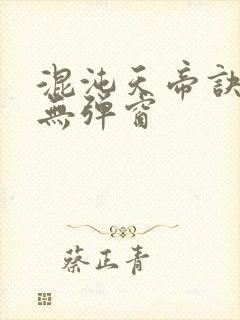 混沌天帝訣
無彈窗
蔡正青